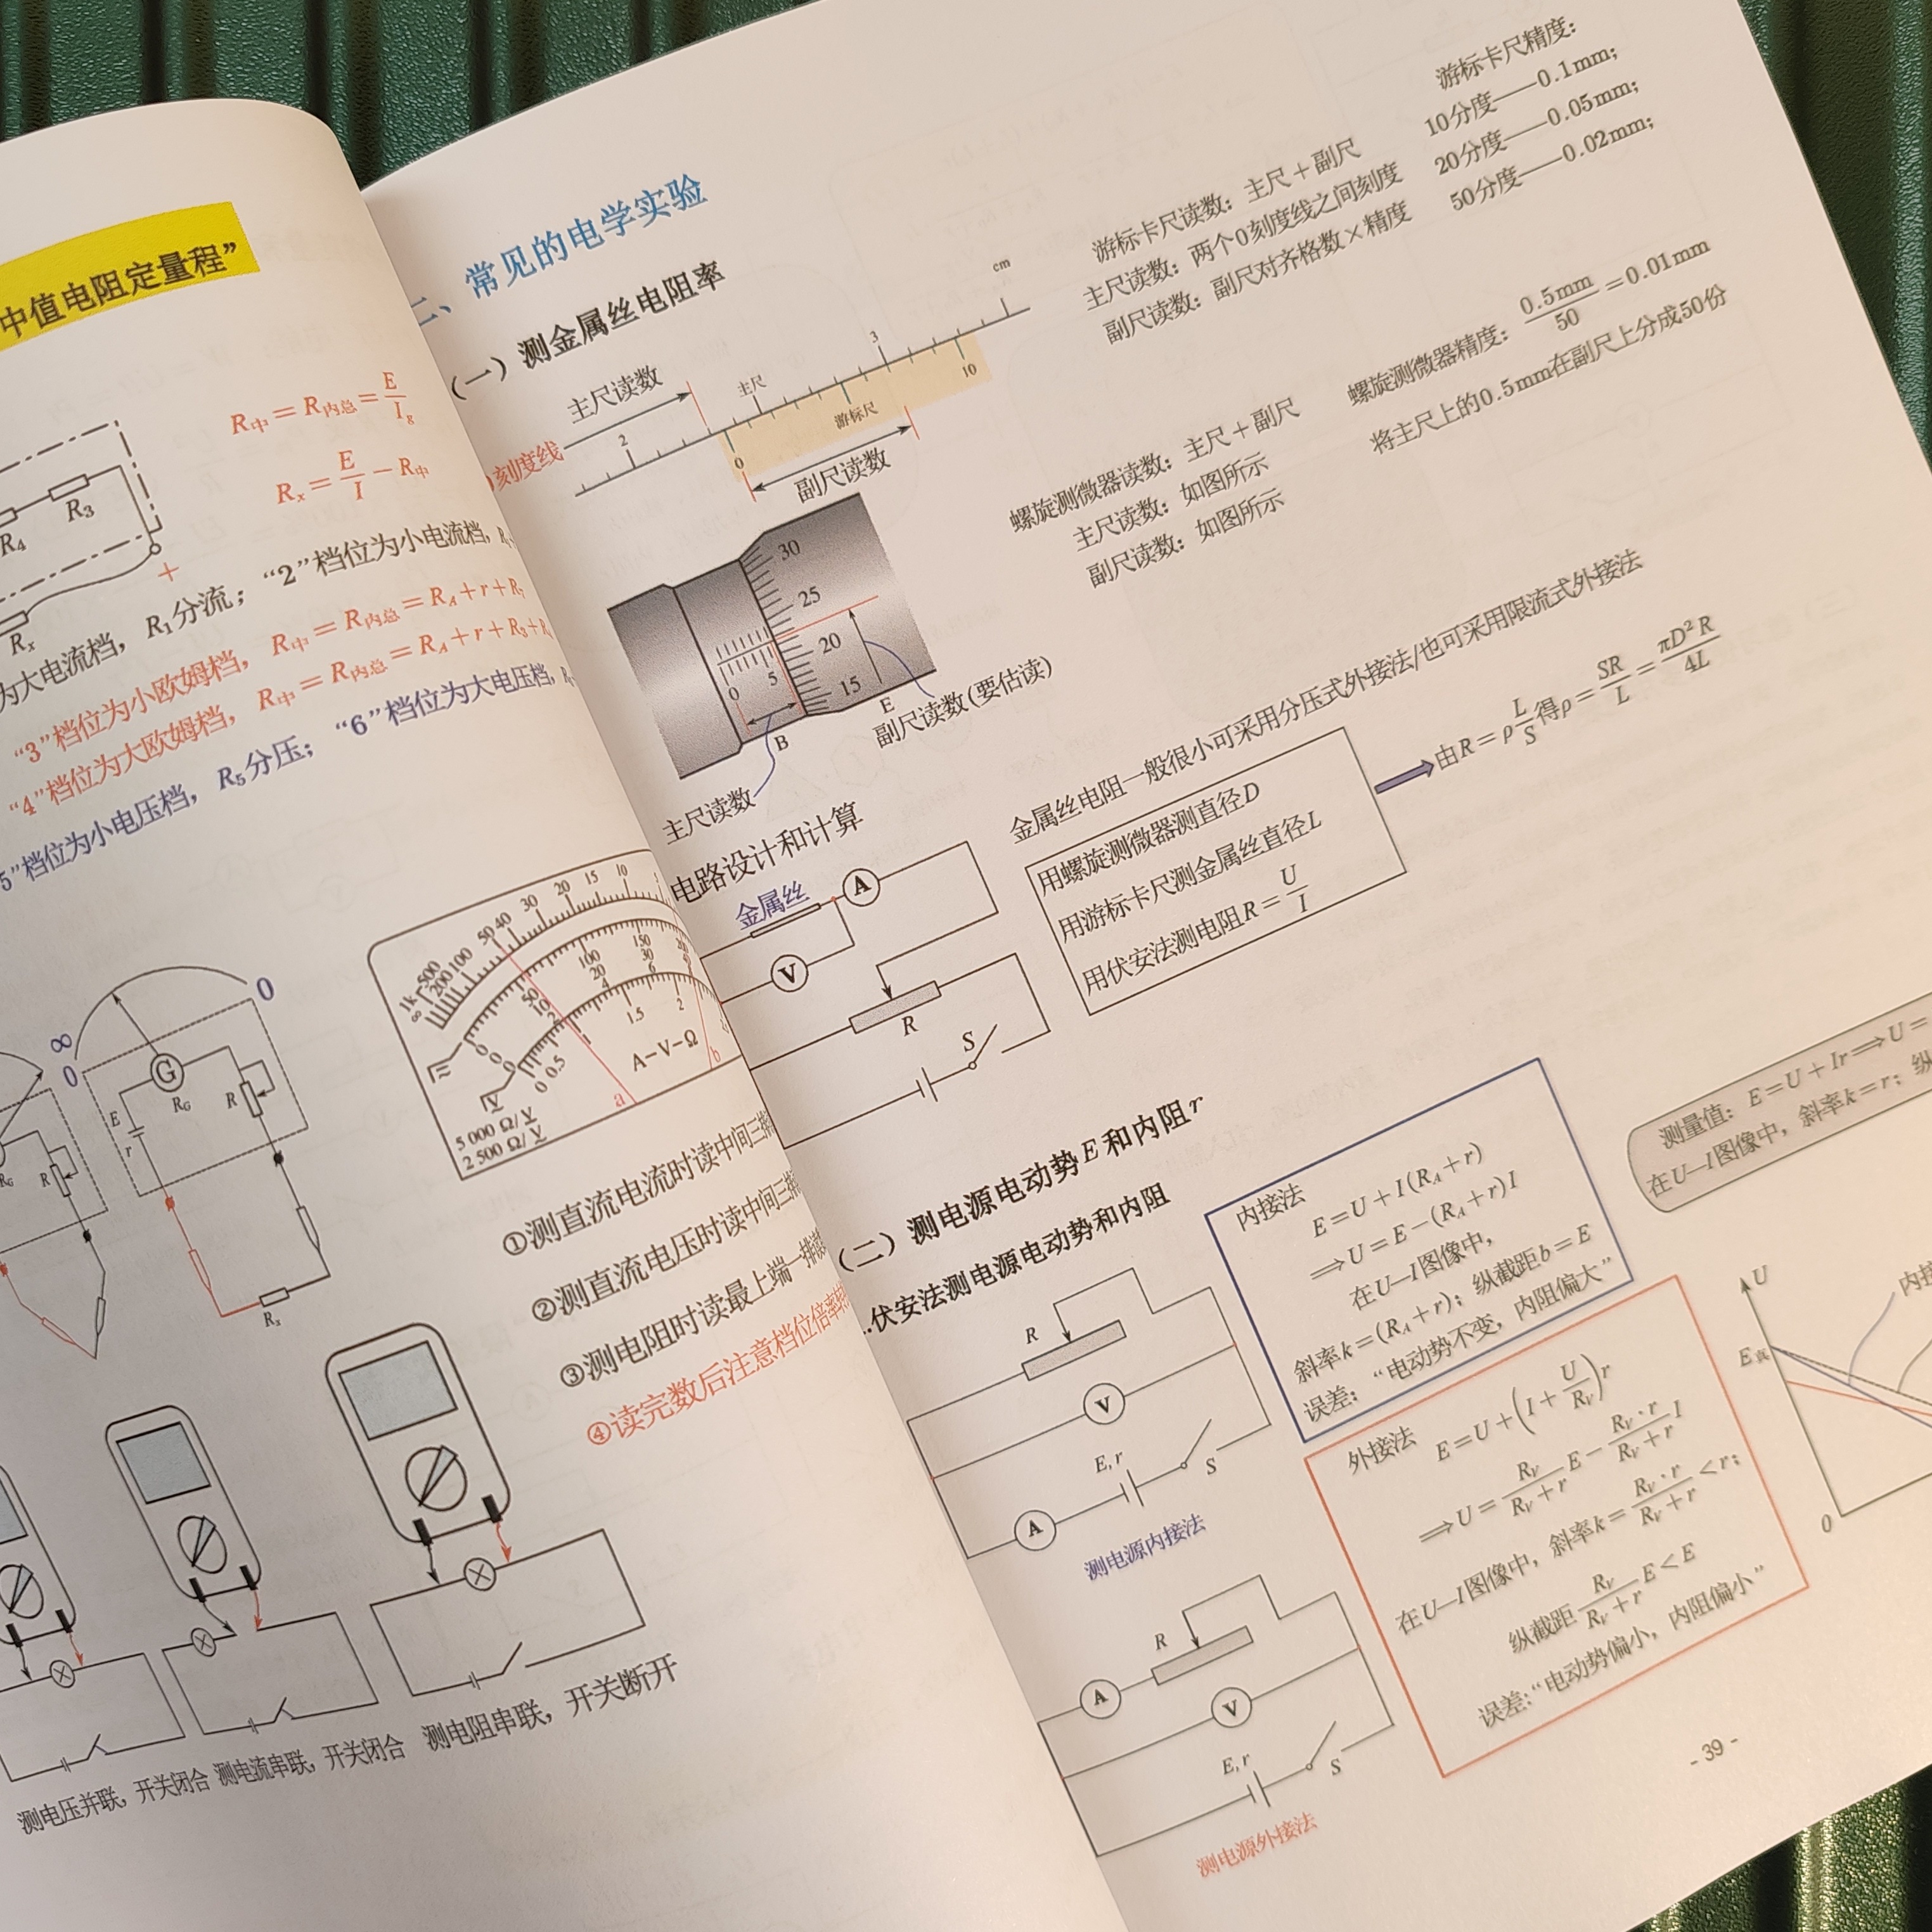 中值电阻定量程”
R中=R内总=E/Ig
Rx=E/I-R中
R3
R4
Rx
+
为大电流档，R1分流；“2”档位为小电流档，
“3”档位为小欧姆档，R中=R内总=RA+r+R
“4”档位为大欧姆档，R中=R内总=RA+r+R3+R
5”档位为小电压档，R5分压；“6”档位为大电压档，
∞
0
0
G
RG
R
E
r
RG
R
Rx
1k 500 200 100 50 40 30 20 15 10
∞
0 50 100 150
0 10 20 30
0 2 4 6
0 0.5 1 1.5 2
A-V-Ω
5 000 Ω/V
2 500 Ω/V
a
b
①测直流电流时读中间三排
②测直流电压时读中间三排
③测电阻时读最上端一排
④读完数后注意档位倍率
测电压并联，开关闭合
测电流串联，开关闭合
测电阻串联，开关断开
二、常见的电学实验
（一）测金属丝电阻率
主尺读数
主尺
2
3
cm
刻度线
0
游标尺
10
副尺读数
游标卡尺读数：主尺+副尺
主尺读数：两个0刻度线之间刻度
副尺读数：副尺对齐格数×精度
游标卡尺精度：
10分度——0.1mm；
20分度——0.05mm；
50分度——0.02mm；
30
25
20
15
0
5
B
E
主尺读数
副尺读数(要估读)
螺旋测微器读数：主尺+副尺
主尺读数：如图所示
副尺读数：如图所示
螺旋测微器精度：0.5mm/50=0.01mm
将主尺上的0.5mm在副尺上分成50份
电路设计和计算
金属丝
A
V
R
S
金属丝电阻一般很小可采用分压式外接法/也可采用限流式外接法
用螺旋测微器测直径D
用游标卡尺测金属丝直径L
用伏安法测电阻R=U/I
由R=ρL/S得ρ=SR/L=πD²R/4L
（二）测电源电动势E和内阻r
伏安法测电源电动势和内阻
R
V
E,r
S
A
测电源内接法
内接法
E=U+I(RA+r)
⟹U=E-(RA+r)I
在U—I图像中，
斜率k=(RA+r)；纵截距b=E
误差：“电动势不变，内阻偏大”
测量值：E=U+Ir⟹U=
在U—I图像中，斜率k=r；纵
R
A
V
E,r
S
测电源外接法
外接法
E=U+(I+U/RV)r
⟹U=RV/(RV+r)E-RV·r/(RV+r)I
在U—I图像中，斜率k=RV·r/(RV+r)<r；
纵截距RV/(RV+r)E<E
误差:“电动势偏小，内阻偏小”
U
E真
0
内接
- 39 -